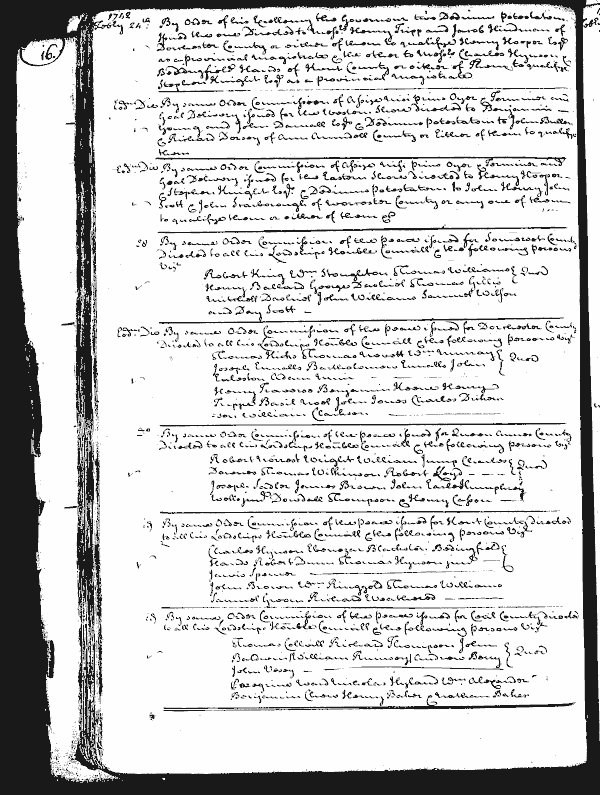 16.
1742
By Order of his Excellency the Governour two Dedimus Potestatem
Issued the one Directed to Messrs Henry Tripp and Jacob Hindman of
Dorchester County or either of them to qualify Henry Hooper Esqr
as a provincial Magistrate & the other to Messrs Charles Hynson &
Bedingfield Hands of Kent County or either of Them to qualify
Stephen Knight Esqr as a provincial magistrate
Eodm Die By same Order Commission of Assize Nisi prius Oyer & Terminer and
Goal Delivery issued for the Western Shore directed to Benjamin
Young and John Darnall Esqrs & Dedimus potestatem to John Bullen
& Richard Dorsey of Ann Arundell County or Either of them to qualify
them
Eodm Die By same Order Commission of Assize Nisi prius Oyer & Terminer and
Goal Delivery issued for the Eastern Shore directed to Henry Hooper
& Stephen Knight Esqrs & Dedimus potestatem to John Henry John
Scott & John Scarborough of Worcester County or any one of them
to qualify them or either of them &c
By same Order Commission of the peace issued for Somerset County
Directed to all his Lordships Honble Councill & the following persons
Vizt
Robert King Wm Stoughton Thomas Williams Quod
Henry Ballard George Dashiel Thomas Gillis
Mitchell Dashiel John Williams Samuel Wilson
and Day Scott
Eodm Die By same Order Commission of the peace issued for Dorchester County
Directed to all his Lordships Honble Councill & the following persons Vizt
Thomas Hicks Thomas Nevett Wm Murray Quod
Joseph Ennalls Bartholomew Ennalls John
Eccleston Adam Muir
Henry Travers Benjamin Keene Henry
Trippe Basil Noel John Jones Charles Dickin
son William Clarkson
By same Order Commission of the peace issued for Queen Annes County
Directed to all his Lordships Honble Councill & the following persons Vizt
Robert Norrest Wright William Jump Charles Quod
Downes Thomas Wilkinson Robert Lloyd
Joseph Sadler James Brown John Earle Humphrey
Wells junr Dowdall Thompson & Henry Casson
By same Order Commission of the peace issued for Kent County directed
to all his Lordships Honble Councill & the following persons Vizt
Charles Hynson Ebenezer Blackston Bedingfield
Hands Robert Dunn Thomas Hynson junr
Jarvis Spencer
John Brown Wm Ringgold Thomas Williams
Samuel Groom Richard Weathered
By same Order Commission of the peace issued for Cecil County directed
to all his Lordships Honble Councill & the following persons Vizt
Thomas Colvill Richard Thompson John
Baldwin William Rumsey Andrew Barry Quod
John Veazey
Peregrine Ward Nicholas Hyland Wm Alexander
Benjamin Chew Henry Baker & Nathan Baker